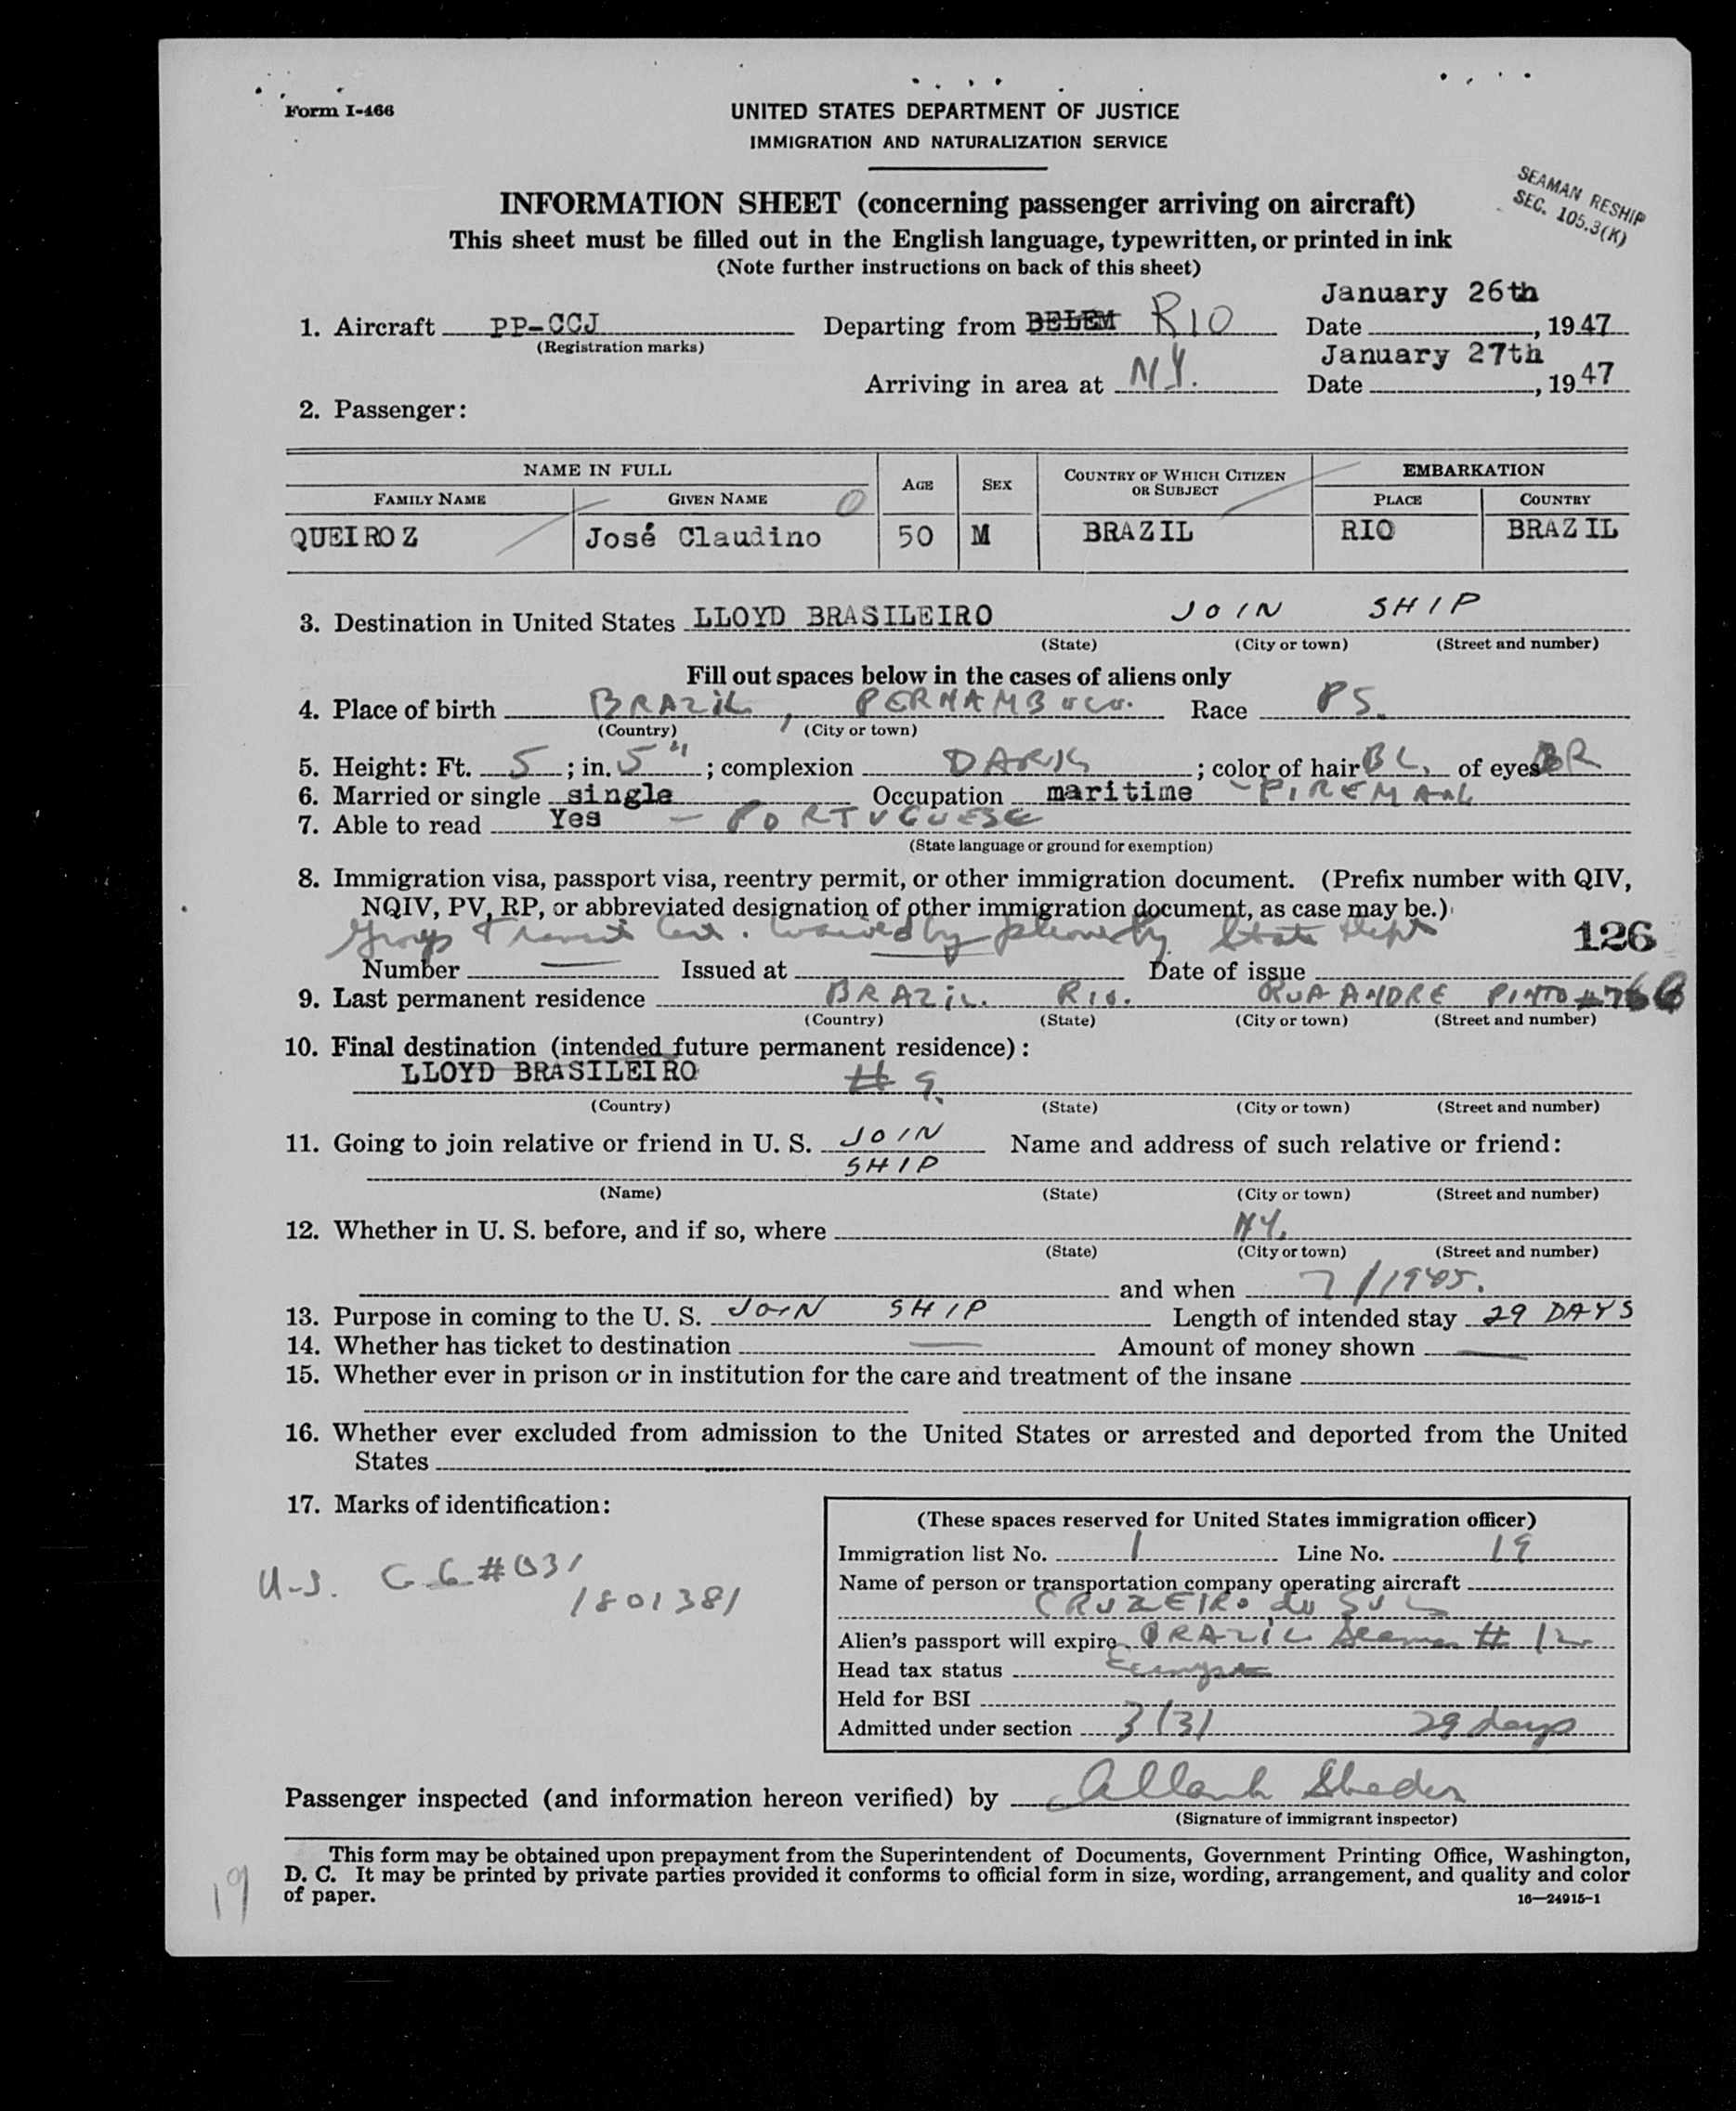 Form I-466
UNITED STATES DEPARTMENT OF JUSTICE
IMMIGRATION AND NATURALIZATION SERVICE
SEAMAN RESHIP
SEC. 105.3(K)
INFORMATION SHEET (concerning passenger arriving on aircraft)
This sheet must be filled out in the English language, typewritten, or printed in ink
(Note further instructions on back of this sheet)
January 26th
1. Aircraft PP-CCJ Departing from BELEM RIO Date , 1947
(Registration marks)
January 27th
Arriving in area at N.Y. Date , 1947
2. Passenger:
NAME IN FULL AGE SEX COUNTRY OF WHICH CITIZEN OR SUBJECT EMBARKATION
FAMILY NAME GIVEN NAME PLACE COUNTRY
QUEIROZ José Claudino 50 M BRAZIL RIO BRAZIL
3. Destination in United States LLOYD BRASILEIRO JOIN SHIP
(State) (City or town) (Street and number)
Fill out spaces below in the cases of aliens only
4. Place of birth BRAZIL, PERNAMBUCO. Race PS.
(Country) (City or town)
5. Height: Ft. 5; in. 5"; complexion DARK; color of hair BL. of eyes BR
6. Married or single single Occupation maritime - FIREMAN
7. Able to read Yes - PORTUGUESE
(State language or ground for exemption)
8. Immigration visa, passport visa, reentry permit, or other immigration document. (Prefix number with QIV,
NQIV, PV, RP, or abbreviated designation of other immigration document, as case may be.)
Transit Cert. waived by by State Dept
126
Number — Issued at Date of issue
9. Last permanent residence BRAZIL. RIO. RUA ANDRE PINTO
(Country) (State) (City or town) (Street and number)
10. Final destination (intended future permanent residence):
LLOYD BRASILEIRO # 9.
(Country) (State) (City or town) (Street and number)
11. Going to join relative or friend in U. S. JOIN Name and address of such relative or friend:
SHIP
(Name) (State) (City or town) (Street and number)
12. Whether in U. S. before, and if so, where NY.
(State) (City or town) (Street and number)
and when 7/1945.
13. Purpose in coming to the U. S. JOIN SHIP Length of intended stay 29 DAYS
14. Whether has ticket to destination — Amount of money shown —
15. Whether ever in prison or in institution for the care and treatment of the insane
16. Whether ever excluded from admission to the United States or arrested and deported from the United
States
17. Marks of identification:
(These spaces reserved for United States immigration officer)
Immigration list No. 1 Line No. 19
Name of person or transportation company operating aircraft
CRUZEIRO do SUL
Alien's passport will expire BRAZIL Seaman #
Head tax status Exempt
Held for BSI
Admitted under section 3(3) 29 days
U-S. CG #
1801381
Passenger inspected (and information hereon verified) by
(Signature of immigrant inspector)
This form may be obtained upon prepayment from the Superintendent of Documents, Government Printing Office, Washington,
D. C. It may be printed by private parties provided it conforms to official form in size, wording, arrangement, and quality and color
of paper.
16—24915-1
19